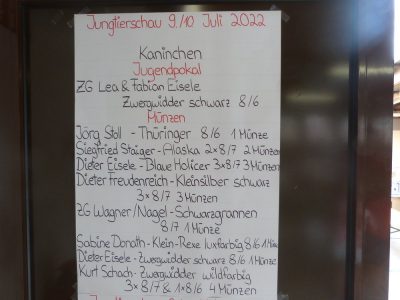 Jungtierschau 9./10 Juli 2022
Kaninchen
Jugendpokal
ZG Lea & Fabian Eisele
Zwergwidder schwarz 8/6
Münzen
Jörg Stoll - Thüringer 8/6 1 Münze
Siegfried Staiger - Alaska 2x8/7 2 Münzen
Dieter Eisele - Blaue Holicer 3x8/7 3 Münzen
Dieter Freudenreich - Kleinsilber schwarz
3x8/7 3 Münzen
ZG Wagner/Nagel - Schwarzgrannen
8/7 1 Münze
Sabine Dorath - Klein-Rexe luxfarbig 8/6 1 Münze
Dieter Eisele - Zwergwidder schwarz 8/6 1 Münze
Kurt Schach - Zwergwidder wildfarbig
3x8/7 & 1x8/6 4 Münzen